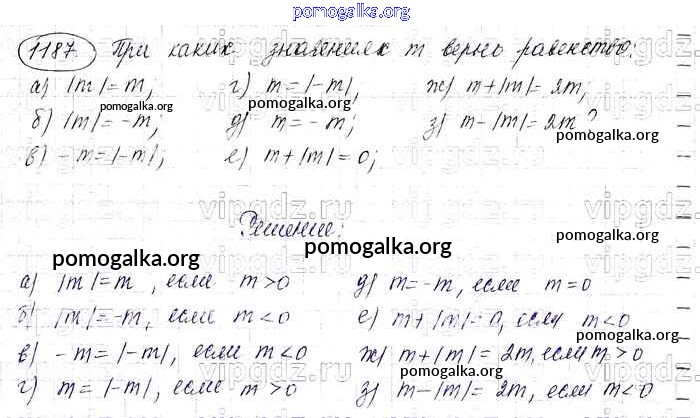 pomogalka.org
1187. При каких значениях m верно равенство:
а) |m|=m; г) m=|-m|, ж) m+|m|=2m;
pomogalka.org pomogalka.org
б) |m|=-m; д) m=-m; з) m-|m|=2m?
pomogalka.org
в) -m=|-m|; е) m+|m|=0;
vipgdz.ru vipgdz.ru
Решение:
pomogalka.org pomogalka.org
а) |m|=m, если m>0 д) m=-m, если m=0
б) |m|=-m, если m<0 е) m+|m|=0, если m<0
pomogalka.org
в) -m=|-m|, если m<0 ж) m+|m|=2m, если m>0
pomogalka.org
г) m=|-m|, если m>0 з) m-|m|=2m, если m<0